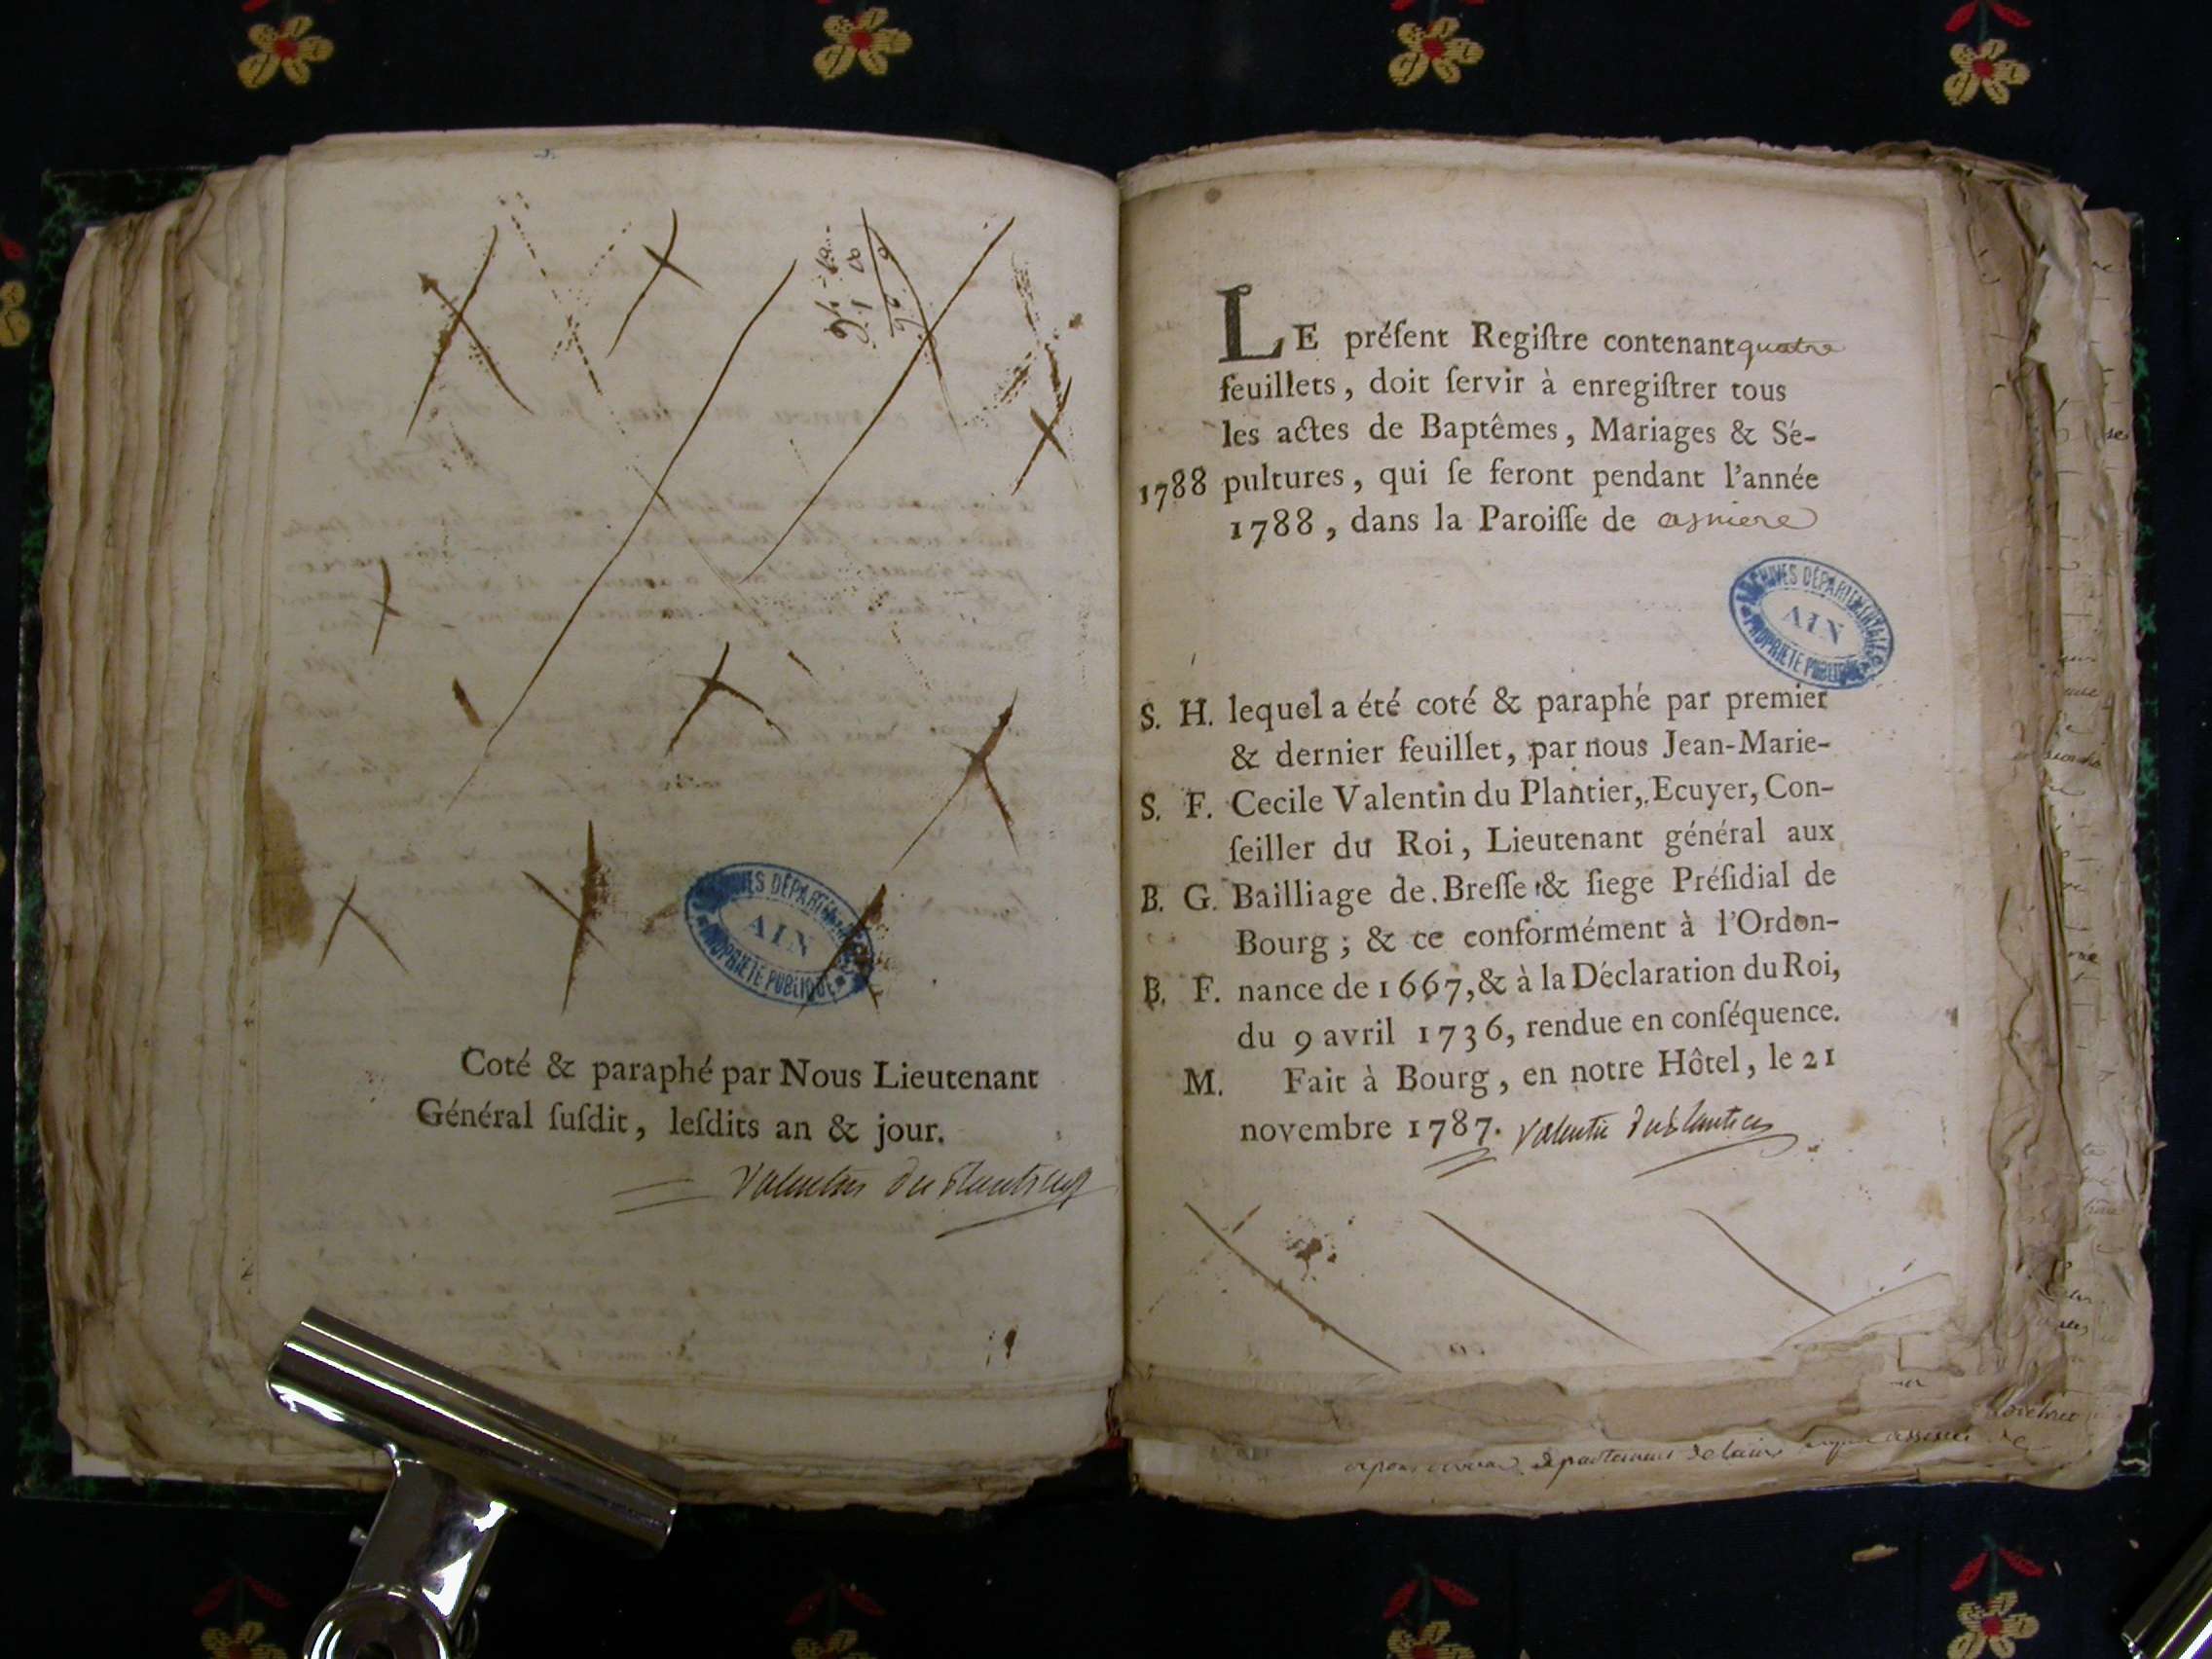 ARCHIVES DÉPARTEMENTALES
AIN
PROPRIÉTÉ PUBLIQUE
Coté & paraphé par Nous Lieutenant
Général ſuſdit, leſdits an & jour.
Valentin du Plantier
LE préſent Regiſtre contenant quatre
feuillets, doit ſervir à enregiſtrer tous
les actes de Baptêmes, Mariages & Sé-
1788 pultures, qui ſe feront pendant l'année
1788, dans la Paroiſſe de asniere
ARCHIVES DÉPARTEMENTALES
AIN
PROPRIÉTÉ PUBLIQUE
S. H. lequel a été coté & paraphé par premier
& dernier feuillet, par nous Jean-Marie-
S. F. Cecile Valentin du Plantier, Ecuyer, Con-
ſeiller du Roi, Lieutenant général aux
B. G. Bailliage de Breſſe & ſiege Préſidial de
Bourg ; & ce conformément à l'Ordon-
B. F. nance de 1667, & à la Déclaration du Roi,
du 9 avril 1736, rendue en conſéquence.
M. Fait à Bourg, en notre Hôtel, le 21
novembre 1787. Valentin duPlantier
departement de lain